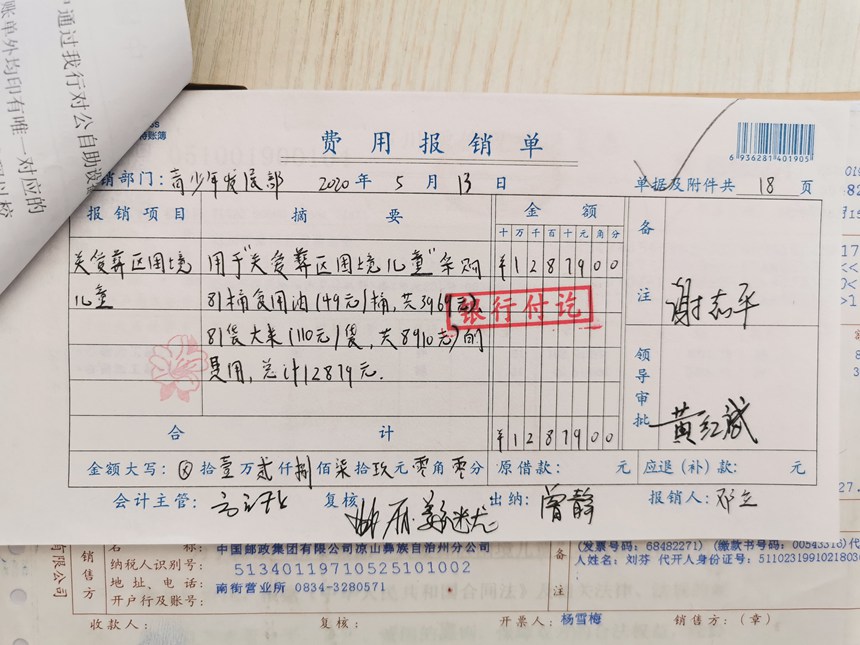 通过我行对公自助设
账单外均印有唯一对应的
费用报销单
6 936281 401905
销部门：青少年发展部 2020年5月13日 单据及附件共 18 页
报销项目 摘要 金额 备注
十万千百十元角分
关爱彝区困境 用于"关爱彝区困境儿童"采购 ¥1287900
儿童 81桶食用油(49元/桶,共3969元)
银行付讫
谢志平
81袋大米(110元/袋,共8910元)的
费用,总计12879元.
领导审批 黄红斌
合计 ¥1287900
金额大写：ⓧ拾壹万贰仟捌佰柒拾玖元零角零分 原借款： 元 应退(补)款： 元
会计主管： 复核： 出纳：曾静 报销人：邓立
销售方
名称：中国邮政集团有限公司凉山彝族自治州分公司
纳税人识别号：51340119710525101002
地址、电话：南街营业所 0834-3280571
开户行及账号：
备注
(发票号码：68482271) (缴款书号码：00543316)代
人姓名：刘芬 代开人身份证号：51102319910218030
收款人： 复核： 开票人：杨雪梅 销售方：(章)